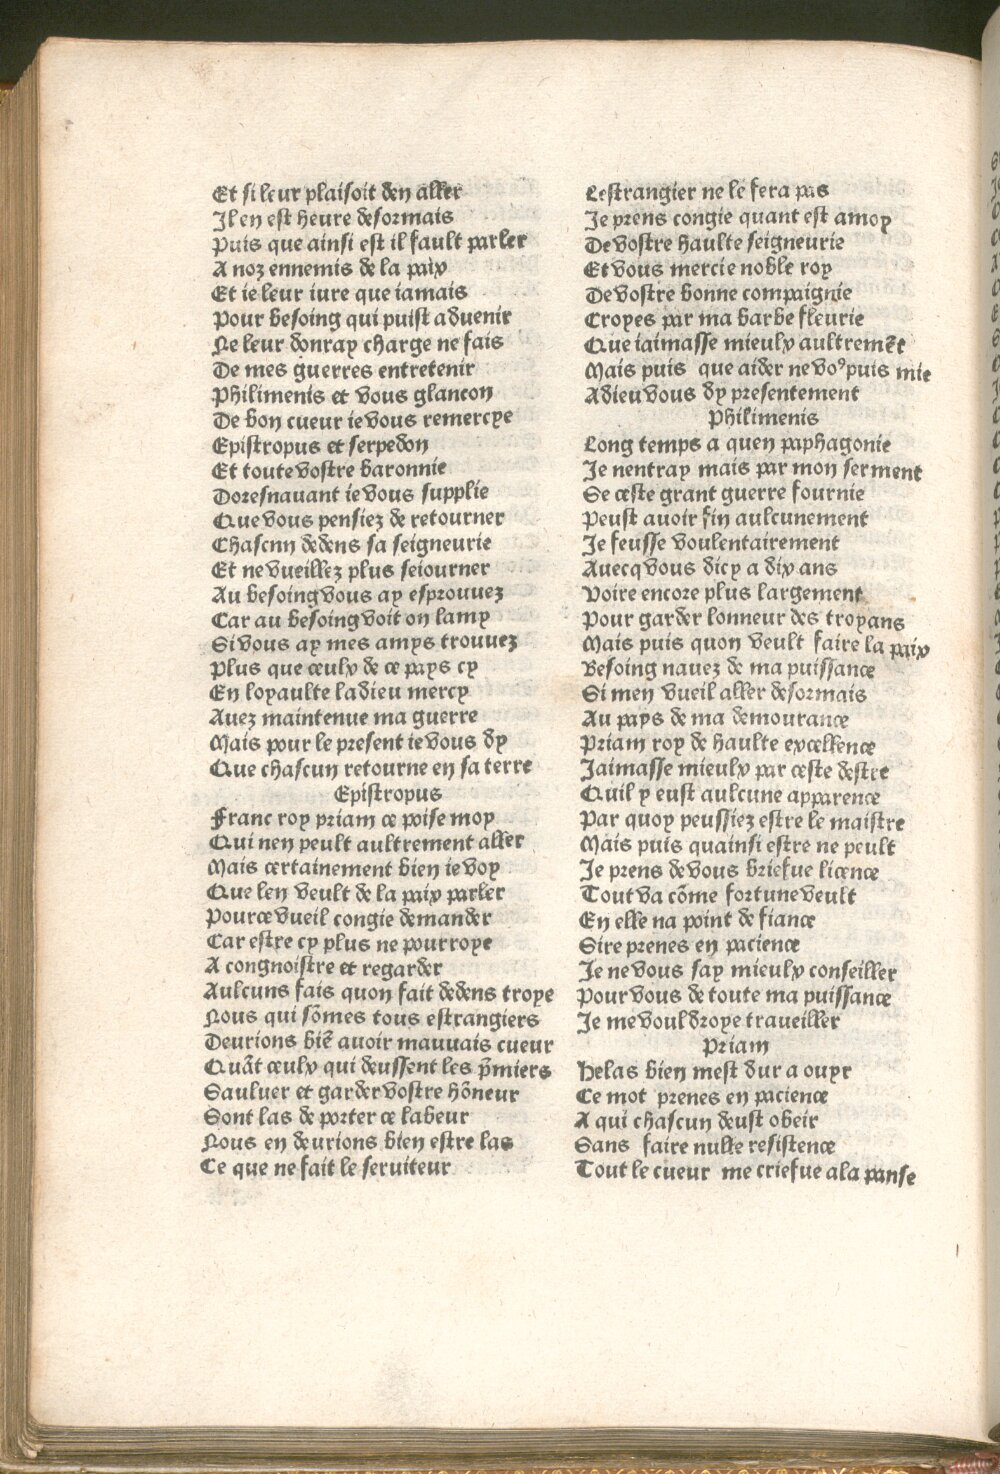 Et si leur plaisoit den aller
Il en est heure desormais
Puis que ainsi est il fault parler
A noz ennemis de la paix
Et ie leur iure que iamais
Pour besoing qui puist aduenir
Ne leur donray charge ne fais
De mes guerres entretenir
Philimenis et vous glaucon
De bon cueur ie vous remercye
Epistropus et serpedon
Et toute vostre baronnie
Doresnauant ie vous supplie
Que vous pensiez de retourner
Chascun dedens sa seigneurie
Et ne vueillez plus seiourner
Au besoing vous ay esprouuez
Car au besoing voit on lamy
Si vous ay mes amys trouuez
Plus que ceulx de ce pays cy
En loyaulte ladieu mercy
Auez maintenue ma guerre
Mais pour le present ie vous dy
Que chascun retourne en sa terre
Epistropus
Franc roy priam ce poise moy
Qui nen peult aultrement aller
Mais certainement bien ie voy
Que len veult de la paix parler
Pource vueil congie demander
Car estre cy plus ne pourroye
A congnoistre et regarder
Aulcuns fais quon fait dedens troye
Nous qui sõmes tous estrangiers
Deurions biẽ auoir mauuais cueur
Quãt ceulx qui deussent les p̃miers
Sauluer et garder vostre hõneur
Sont las de porter ce labeur
Nous en deurions bien estre las
Ce que ne fait le seruiteur
Lestrangier ne le fera pas
Je prens congie quant est a moy
De vostre haulte seigneurie
Et vous mercie noble roy
De vostre bonne compaignie
Croyes par ma barbe fleurie
Que iaimasse mieulx aultremẽt
Mais puis que aider ne voꝰ puis mie
Adieu vous dy presentement
Philimenis
Long temps a quen paphagonie
Je nentray mais par mon serment
Se ceste grant guerre fournie
Peust auoir fin aulcunement
Je feusse voulentairement
Auecq vous dicy a dix ans
Voire encore plus largement
Pour garder lonneur des troyans
Mais puis quon veult faire la paix
Besoing nauez de ma puissance
Si men vueil aller desormais
Au pays de ma demourance
Priam roy de haulte excellence
Jaimasse mieulx par ceste destre
Quil y eust aulcune apparence
Par quoy peussiez estre le maistre
Mais puis quainsi estre ne peult
Je prens de vous briefue licence
Tout va cõme fortune veult
En elle na point de fiance
Sire prenes en pacience
Je ne vous say mieulx conseiller
Pour vous de toute ma puissance
Je me vouldroye traueiller
Priam
Helas bien mest dur a ouyr
Ce mot prenes en pacience
A qui chascun deust obeir
Sans faire nulle resistence
Tout le cueur me criefue a la panse